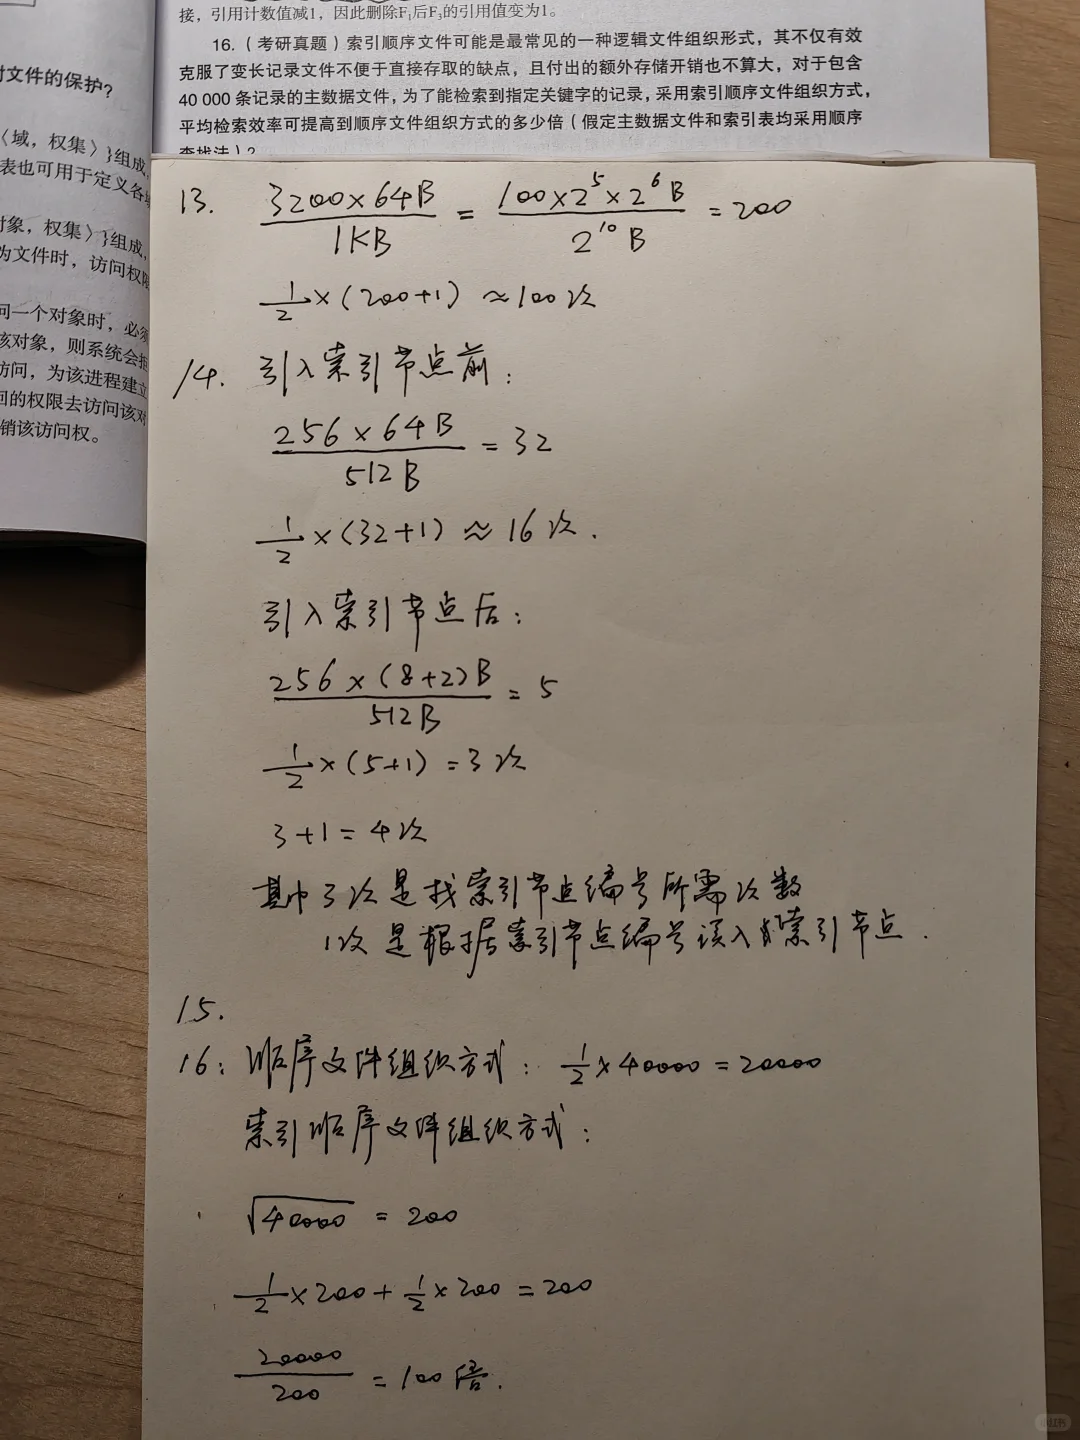 接，引用计数值减1，因此删除F₁后F₃的引用值变为1。
16.（考研真题）索引顺序文件可能是最常见的一种逻辑文件组织形式，其不仅有效
克服了变长记录文件不便于直接存取的缺点，且付出的额外存储开销也不算大，对于包含
40 000 条记录的主数据文件，为了能检索到指定关键字的记录，采用索引顺序文件组织方式，
平均检索效率可提高到顺序文件组织方式的多少倍（假定主数据文件和索引表均采用顺序
查找法）？
对文件的保护？
〈域，权集〉}组成，
表也可用于定义各
对象，权集〉}组成，
为文件时，访问权限
问一个对象时，必须
该对象，则系统会
访问，为该进程建立
回的权限去访问该对
销该访问权。
13. 3200×64B / 1KB = 100×2⁵×2⁶B / 2¹⁰B = 200
1/2 ×(200+1) ≈100次
14. 引入索引节点前：
256×64B / 512B = 32
1/2 ×(32+1) ≈ 16次.
引入索引节点后：
256×(8+2)B / 512B = 5
1/2 ×(5+1) = 3次
3+1=4次
其中3次是找索引节点编号所需次数
1次是根据索引节点编号读入索引节点.
15.
16: 顺序文件组织方式: 1/2 ×40000=20000
索引顺序文件组织方式:
√40000 = 200
1/2 ×200 + 1/2 ×200 = 200
20000 / 200 = 100倍.